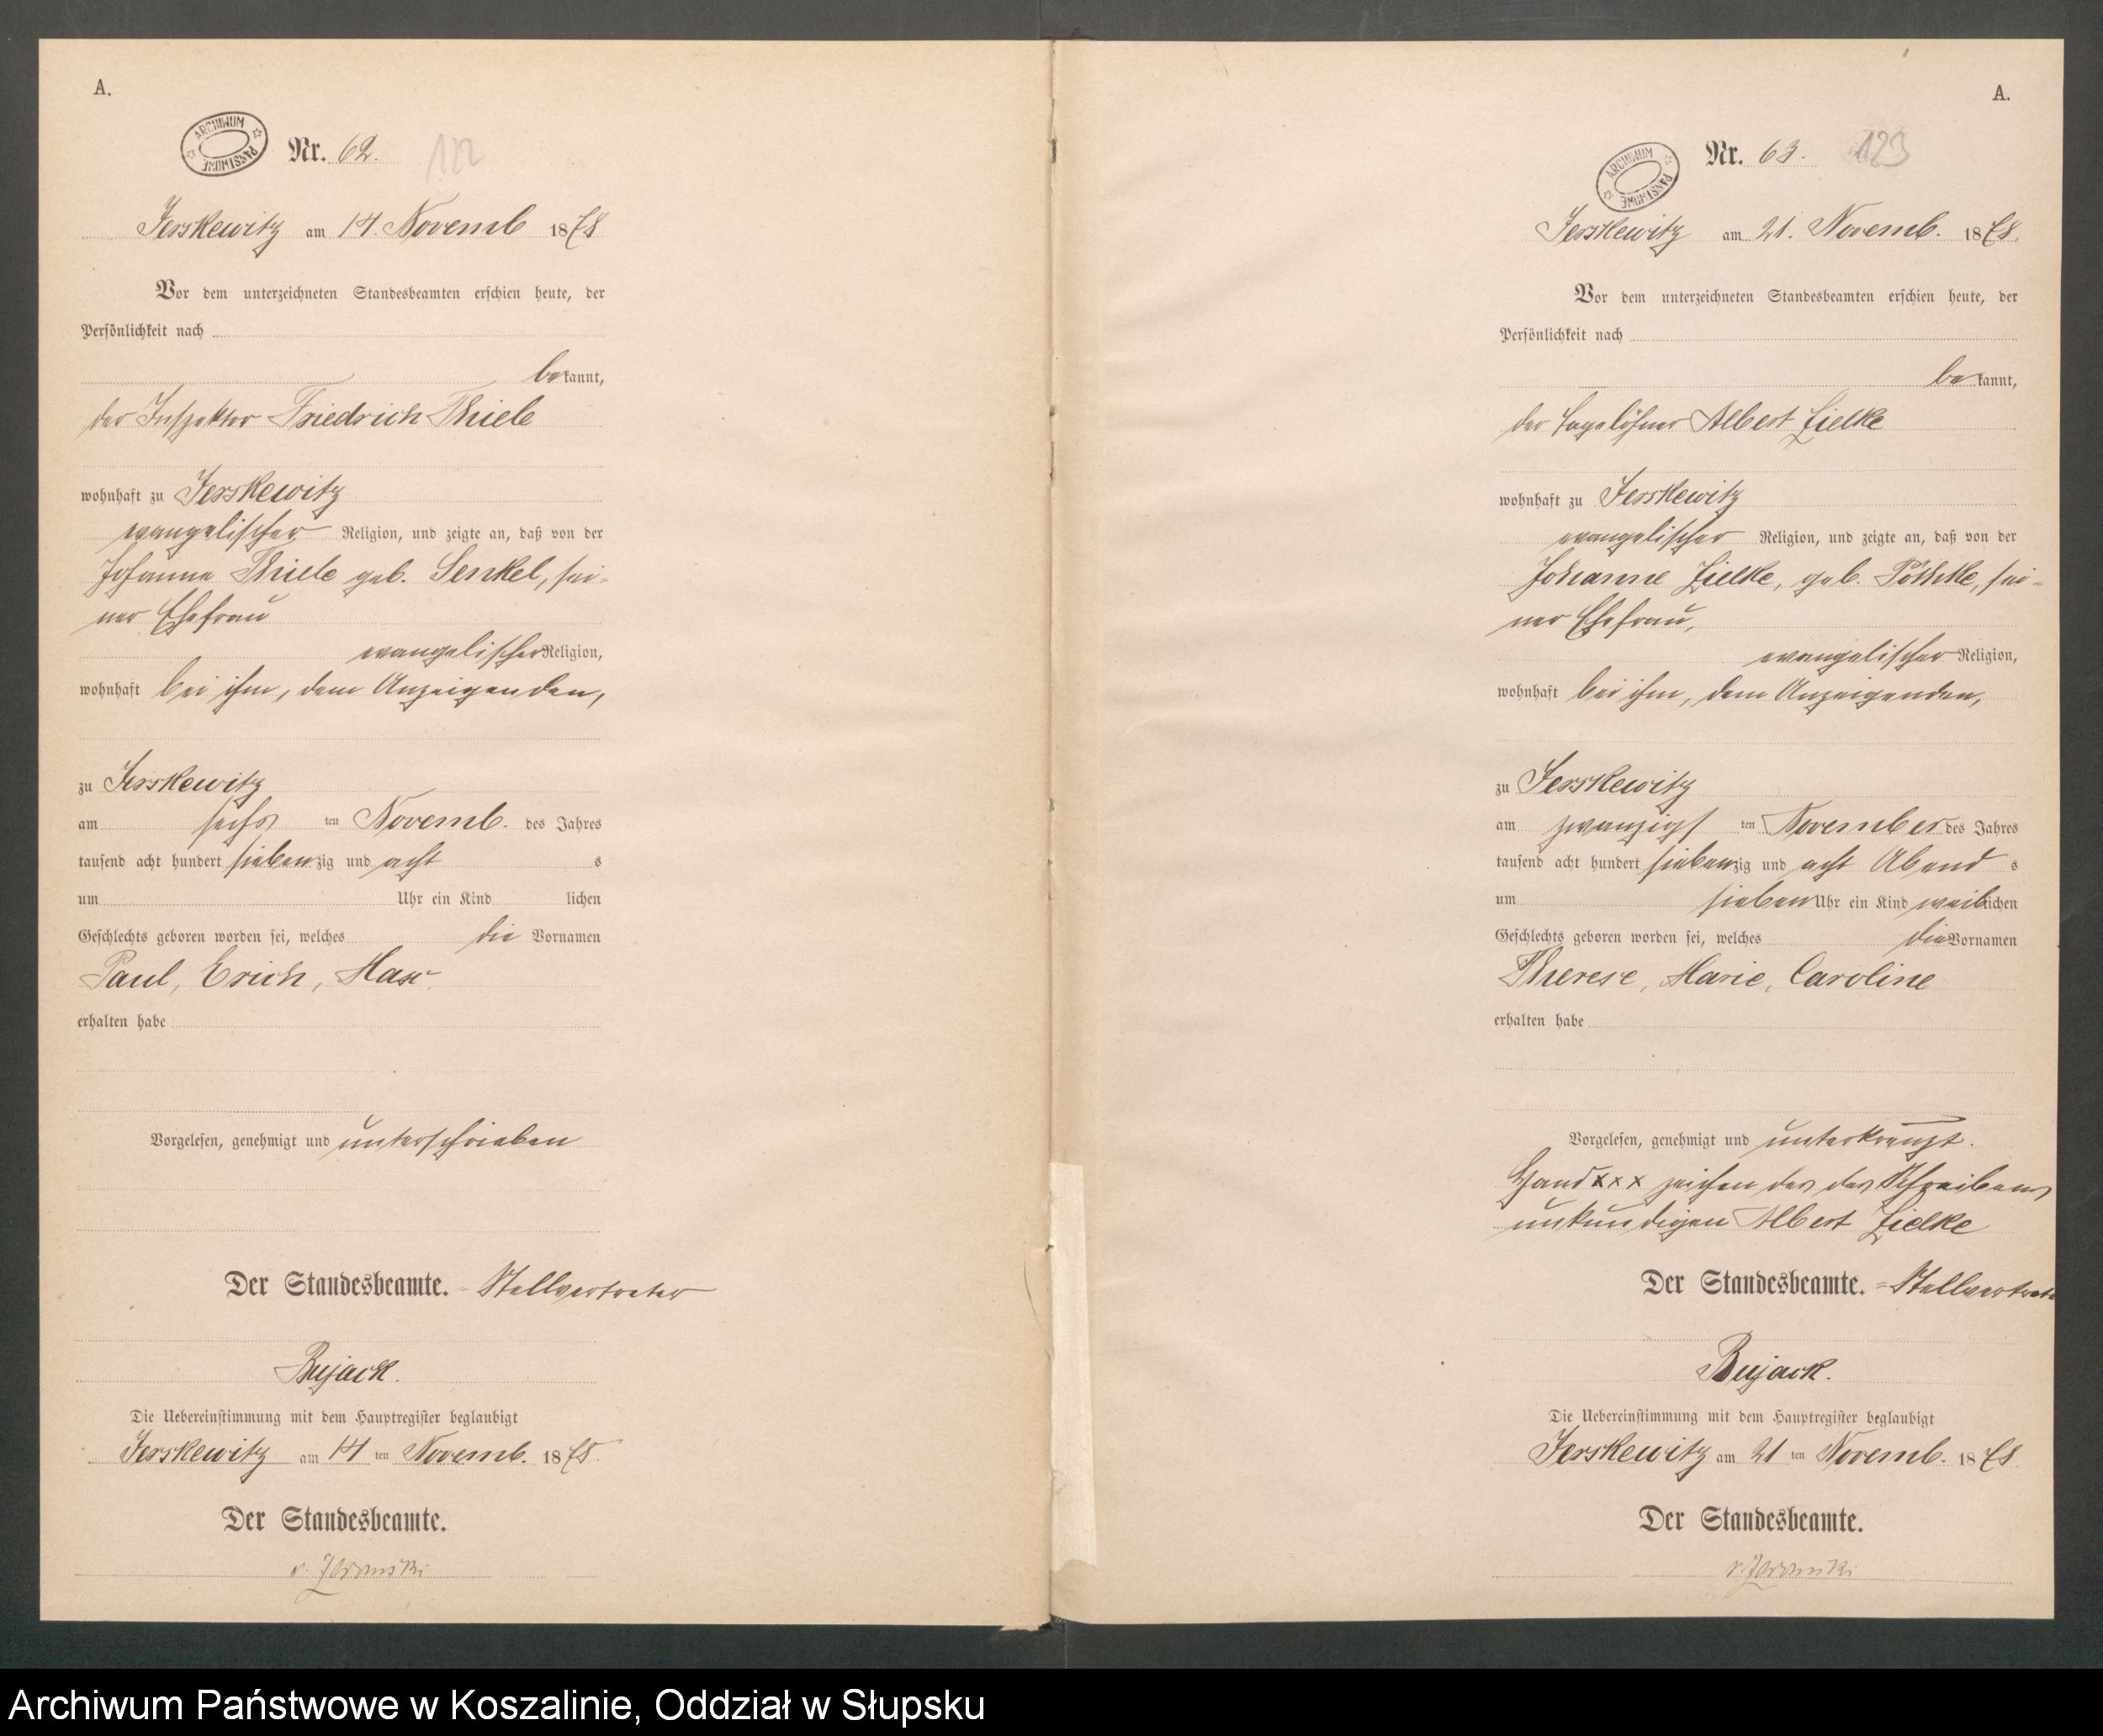 A.
ARCHIWUM PAŃSTWOWE
Nr. 62. 122
Jerskewitz am 14. Novemb 1878
Vor dem unterzeichneten Standesbeamten erschien heute, der
Persönlichkeit nach
bekannt,
der Inspektor Friedrich Thiele
wohnhaft zu Jerskewitz
evangelischer Religion, und zeigte an, daß von der
Johanna Thiele geb. Senkel, sei-
ner Ehefrau
evangelischer Religion,
wohnhaft bei ihm, dem Anzeigenden,
zu Jerskewitz
am sechs ten Novemb. des Jahres
tausend acht hundert siebenzig und acht s
um Uhr ein Kind lichen
Geschlechts geboren worden sei, welches die Vornamen
Paul, Erich, Max
erhalten habe
Vorgelesen, genehmigt und unterschrieben
Der Standesbeamte. - Stellvertreter
Bujack.
Die Uebereinstimmung mit dem Hauptregister beglaubigt
Jerskewitz am 14 ten Novemb. 1878.
Der Standesbeamte.
v.
A.
ARCHIWUM PAŃSTWOWE
Nr. 63. 123
Jerskewitz am 21. Novemb. 1878.
Vor dem unterzeichneten Standesbeamten erschien heute, der
Persönlichkeit nach
bekannt,
der Tagelöhner Albert Zielke
wohnhaft zu Jerskewitz
evangelischer Religion, und zeigte an, daß von der
Johanne Zielke, geb. Pöthke, sei-
ner Ehefrau,
evangelischer Religion,
wohnhaft bei ihm, dem Anzeigenden,
zu Jerskewitz
am zwanzigs ten November des Jahres
tausend acht hundert siebenzig und acht Abend s
um sieben Uhr ein Kind weiblichen
Geschlechts geboren worden sei, welches die Vornamen
Therese, Marie, Caroline
erhalten habe
Vorgelesen, genehmigt und unterkreuzt.
Hand xxx zeichen des des Schreibens
unkundigen Albert Zielke
Der Standesbeamte. - Stellvertrete
Bujack.
Die Uebereinstimmung mit dem Hauptregister beglaubigt
Jerskewitz am 21 ten Novemb. 1878
Der Standesbeamte.
v.
Archiwum Państwowe w Koszalinie, Oddział w Słupsku